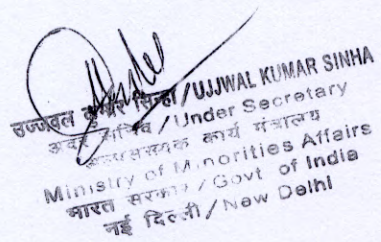 उज्जवल कुमार सिन्हा / UJJWAL KUMAR SINHA
अवर सचिव / Under Secretary
अल्पसंख्यक कार्य मंत्रालय
Ministry of Minorities Affairs
भारत सरकार / Govt of India
नई दिल्ली / New Delhi